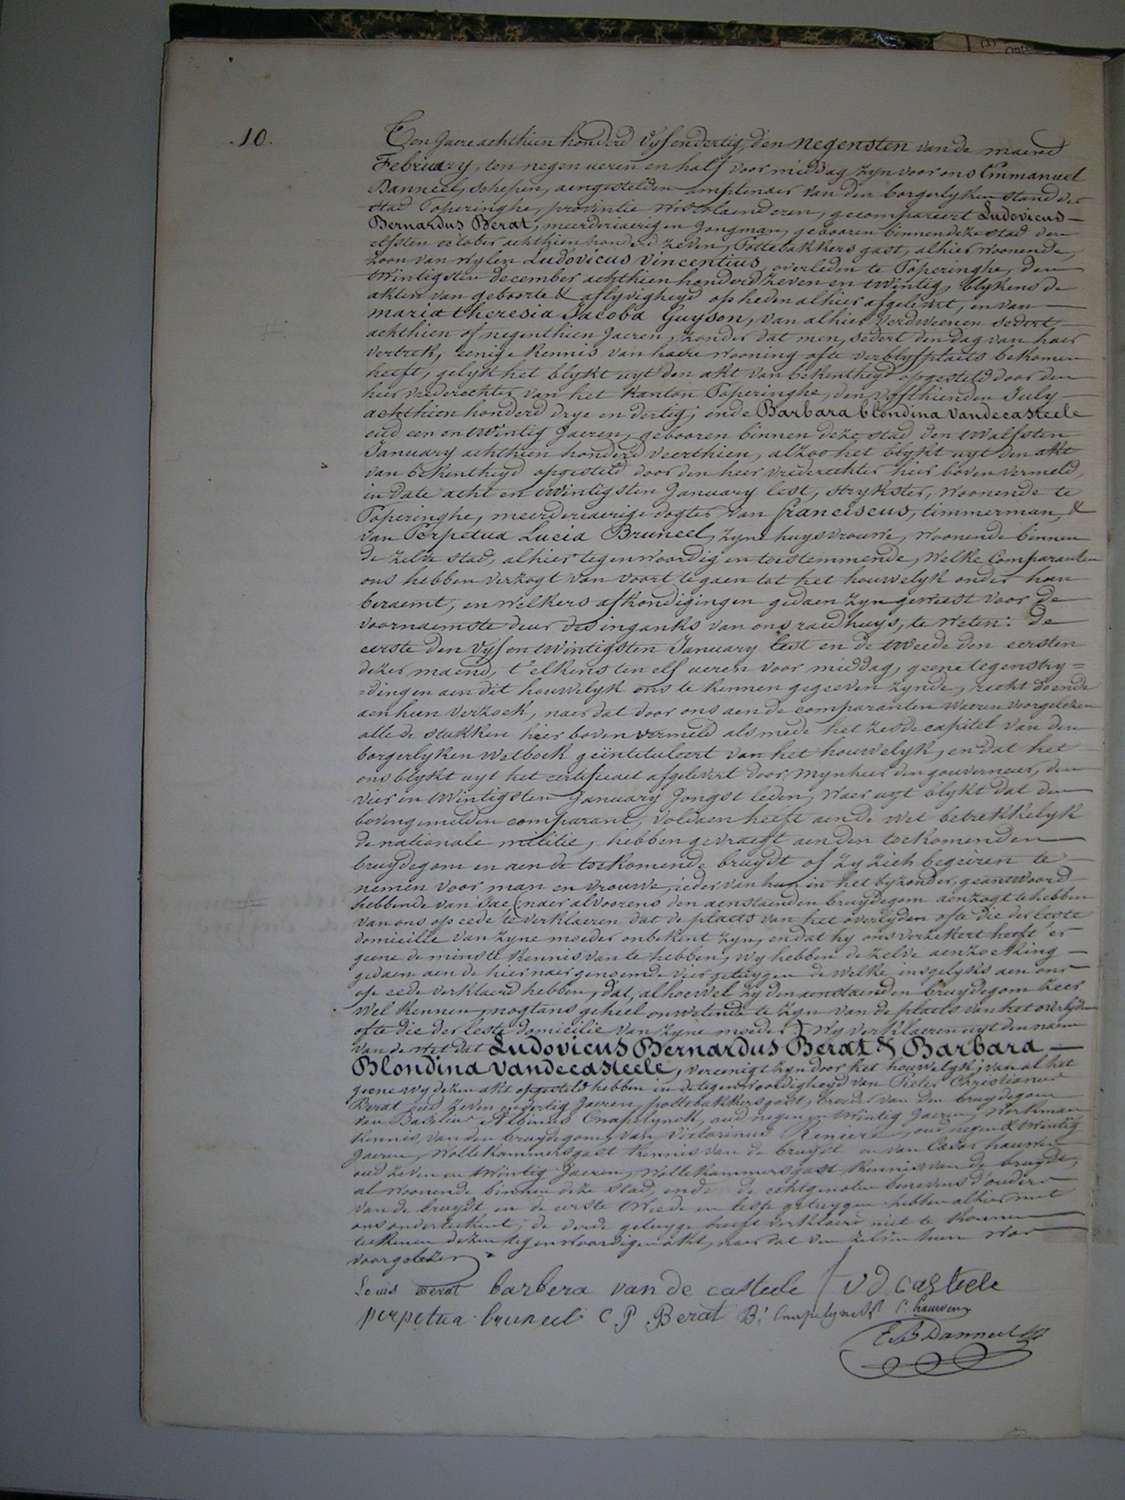 .10.
Ten Jaere achthien honderd vyfendertig, den negensten van de maend
February, ten negen ueren en half voor middag zyn voor ons Emmanuel
Danneel, schepen, aengestelden amptenaer van den borgerlyken stand der
stad Poperinghe, provintie Westvlaenderen, gecompareert Ludovicus
Bernardus Berat, meerderjaerigen Jongman, gebooren binnen deze stad den
elfsten october achthien honderd zeven, Pottebakkers gast, alhier woonende,
zoon van wylen Ludovicus Vincentius, overleden te Poperinghe, den
twintigsten december achthien honderd zeven en twintig, blykens de
akten van geboorte & aflyvigheyd op heden alhier afgelevert, en van
maria theresia Jacoba Guyson, van alhier verdweenen sedert
achthien of negenthien Jaeren, zonder dat men, sedert den dag van haer
vertrek, eenige kennis van haere wooning ofte verblyfplaets bekomen
heeft, gelyk het blykt uyt den akt van bekentheyd opgesteld door den
heer vrederechter van het kanton Poperinghe, den vyfthienden July
achthien honderd drye en dertig; ende Barbara blondina vandecasteele
oud een en twintig Jaeren, gebooren binnen deze stad den twalfsten
January achthien honderd veerthien, alzoo het blykt uyt den akt
van bekentheyd opgesteld door den heer vrederechter hier boven vermeld,
in date acht en twintigsten January lest, strykster, woonende te
Poperinghe, meerderjaerige dogter van franciscus, timmerman, &
van Perpetua Lucia Bruneel, zyne huysvrouwe, woonende binnen
de zelve stad, alhier tegenwoordig en toestemmende, welke Comparanten
ons hebben verzogt van voort te gaen tot het houwelyk onder hun
beraemt, en welkers afkondigingen gedaen zyn geweest voor de
voornaemste deur des inganks van ons raedhuys, te weten: de
eerste den vyf en twintigsten January lest en de tweede den eersten
dezer maend, t'elkens ten elf ueren voor middag, geene tegenstry=
=dingen aen dit houwelyk ons te kennen gegeeven zynde, recht doende
aen hun verzoek, naer dat door ons aen de comparanten waeren voorgelezen
alle de stukken hier boven vermeld als mede het zesde capitel van den
borgerlyken wetboek geïntituleert van het houwelyk, en dat het
ons blykt uyt het certificaet afgelevert door Mynheer den gouverneur, den
vier en twintigsten January Jongst leden, waer uyt blykt dat den
bovengemelden comparant, voldaen heeft aen de wet betrekkelyk
de nationale militie, hebben gevraegt aen den toekomenden
bruydegom en aen de toekomende bruydt of zy zich begeiren te
nemen voor man en vrouwe, ieder van hun in het byzonder, geantwoord
hebbende van Jae (naer alvoorens den aenstaenden bruydegom aenzogt te hebben
van ons op eede te verklaeren dat de plaets van het overlyden ofte die der leste
domicilie van zyne moeder onbekent zyn, en dat hy ons verzekert heeft er
geene de minste kennis van te hebben, wy hebben de zelve aenzoeking
gedaen aen de hier naer genoemde vier getuygen de welke insgelyks aen ons
op eede verklaerd hebben, dat, alhoewel zy den aenstaenden bruydegom zeer
wel kennen, nogtans geheel onwetende te zyn van de plaets van het overlyden
ofte die der leste domicilie van zyne moeder) wy verklaeren uyt den naem
van de wet dat Ludovicus Bernardus Berat & Barbara
Blondina vandecasteele, vereenigt zyn door het houwelyk; van al het
geene wy dezen akt opgesteld hebben in de tegenwoordigheyd van Pieter Christianus
Berat oud zeven en dertig Jaeren, pottebakkersgast, broeder van den bruydegom
van Basilius Albinus Cnapelynck, oud negen en twintig Jaeren, werkman
kennis van den bruydegom, van Victorinus Reniere, oud negen & twintig
Jaeren, wollekammersgast kennis van de bruydt en van Carel hauwen
oud zeven en twintig Jaeren, wollekammersgast kennis van de bruydt,
al woonende binnen deze stad, ende de echtgenoten benevens d'ouders
van de bruydt en de eerste tweede en leste getuygen hebben alhier met
ons onderteekent; de derde getuyge heeft verklaerd niet te konnen
teekenen dezen tegenwoordigen akt, naer dat den zelven hun was
voorgelezen
Louis Berat barbera van de casteele f v d casteele
perpetua bruneel C P Berat B: Cnapelynck C: hauwen
E B Danneel